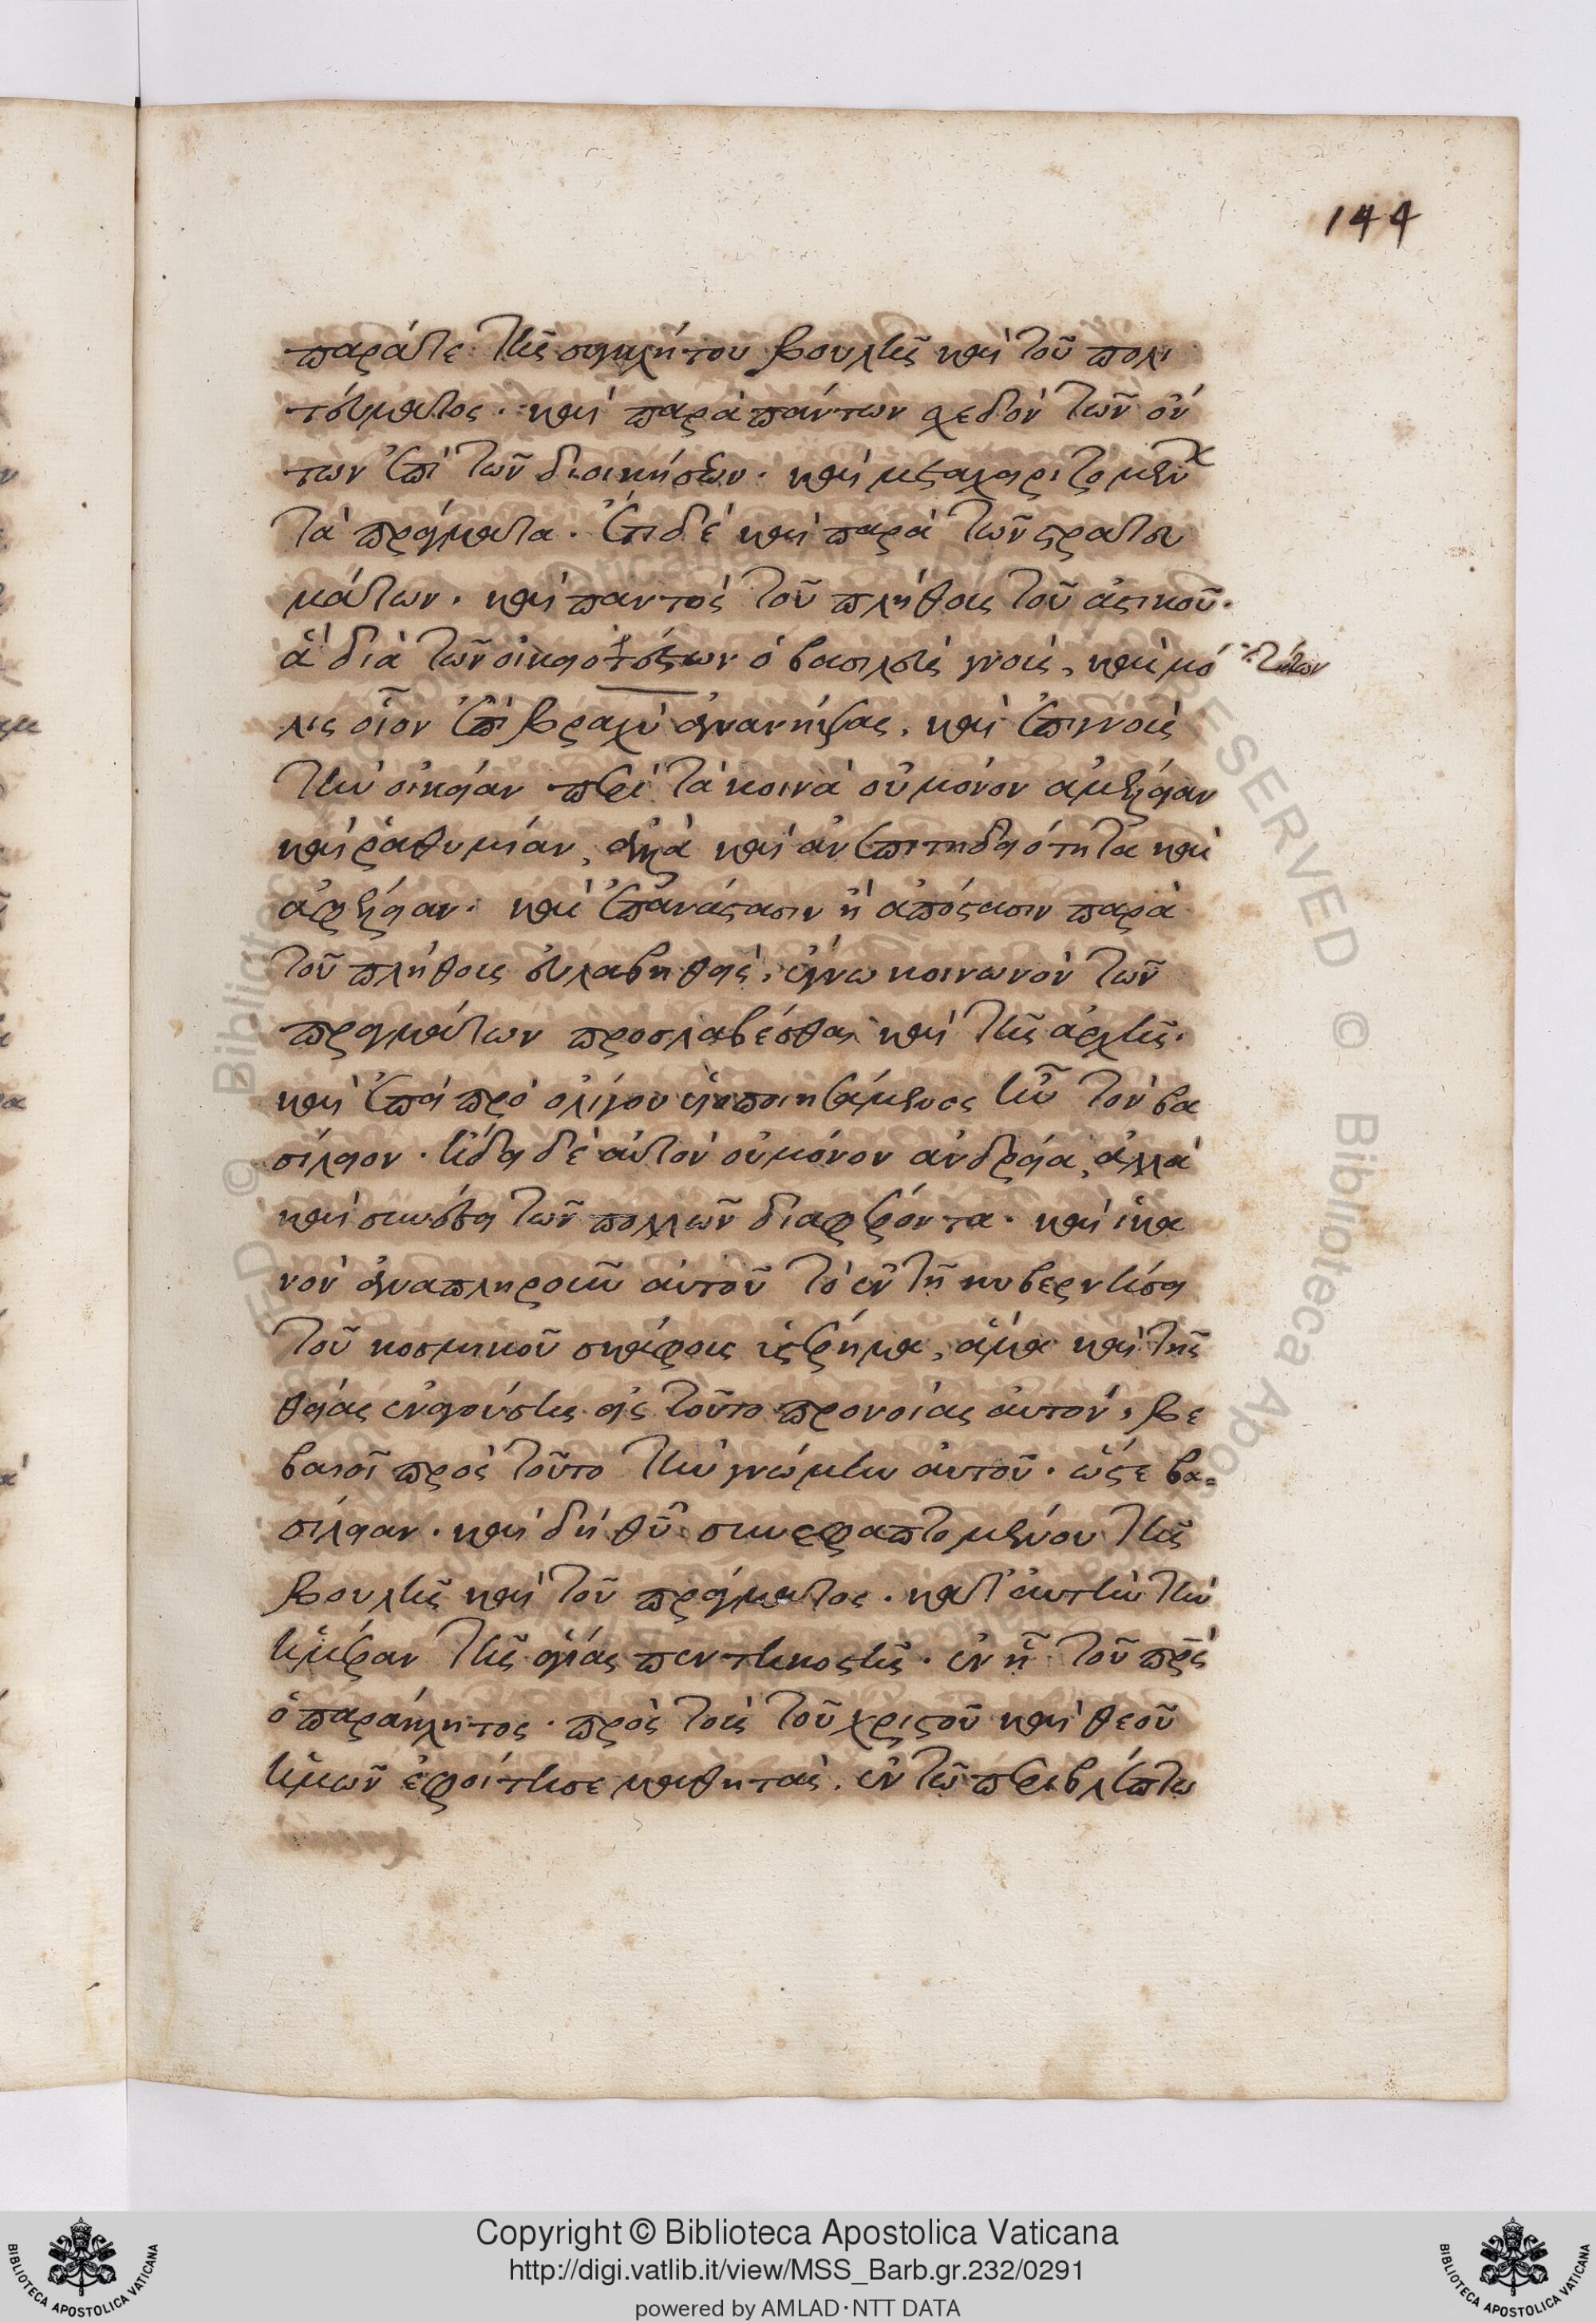 144
παρά τε τῆς συγκλήτου βουλῆς καὶ τοῦ πολι
τεύματος· καὶ παρὰ πάντων σχεδὸν τῶν ὄν
των ἐπὶ τῶν διοικήσεων· καὶ μεταχειριζομένων
τὰ πράγματα· ἔτι δὲ καὶ παρὰ τῶν στρατευ
μάτων· καὶ παντὸς τοῦ πλήθους τοῦ ἀστικοῦ·
ἃ διὰ τῶν οἰκειοτάτων ὁ βασιλεὺς γνοὺς, καὶ μό
λις οἷον ἐπὶ βραχὺ ἀνανήψας, καὶ ἐπιγνοὺς
τὴν οἰκείαν περὶ τὰ κοινὰ οὐ μόνον ἀμέλειαν
καὶ ῥαθυμίαν, ἀλλὰ καὶ ἀνεπιτηδειότητα καὶ
ἀφέλειαν· καὶ ἐπανάστασιν ἢ ἀπόστασιν παρὰ
τοῦ πλήθους εὐλαβηθεὶς, ἔγνω κοινωνὸν τῶν
πραγμάτων προσλαβέσθαι καὶ τῆς ἀρχῆς·
καὶ ἐπεὶ πρὸ ὀλίγου εἰσποιησάμενος ἦν τὸν βα
σίλειον· ᾔδει δὲ αὐτὸν οὐ μόνον ἀνδρεία, ἀλλὰ
καὶ συνέσει τῶν πολλῶν διαφέροντα· καὶ ἱκα
νὸν ἀναπληροῦν αὐτοῦ τὸ ἐν τῇ κυβερνήσει
τοῦ κοσμικοῦ σκάφους ὑστέρημα, ἅμα καὶ τῆς
θείας ἐναγούσης εἰς τοῦτο προνοίας αὐτόν, βε
βαιοῖ πρὸς τοῦτο τὴν γνώμην αὐτοῦ· ὥστε βα=
σίλειαν· καὶ δὴ θεοῦ συνεφαπτομένου τῆς
βουλῆς καὶ τοῦ πράγματος· κατ' αὐτὴν τὴν
ἡμέραν τῆς ἁγίας πεντηκοστῆς· ἐν ᾗ τοῦ πρς
ὁ παράκλητος· πρὸς τοὺς τοῦ χριστοῦ καὶ θεοῦ
ἡμῶν ἐφοίτησε μαθητὰς, ἐν τῷ περιβλέπτω
Copyright © Biblioteca Apostolica Vaticana
http://digi.vatlib.it/view/MSS_Barb.gr.232/0291
powered by AMLAD·NTT DATA
BIBLIOTECA APOSTOLICA VATICANA
BIBLIOTECA APOSTOLICA VATICANA